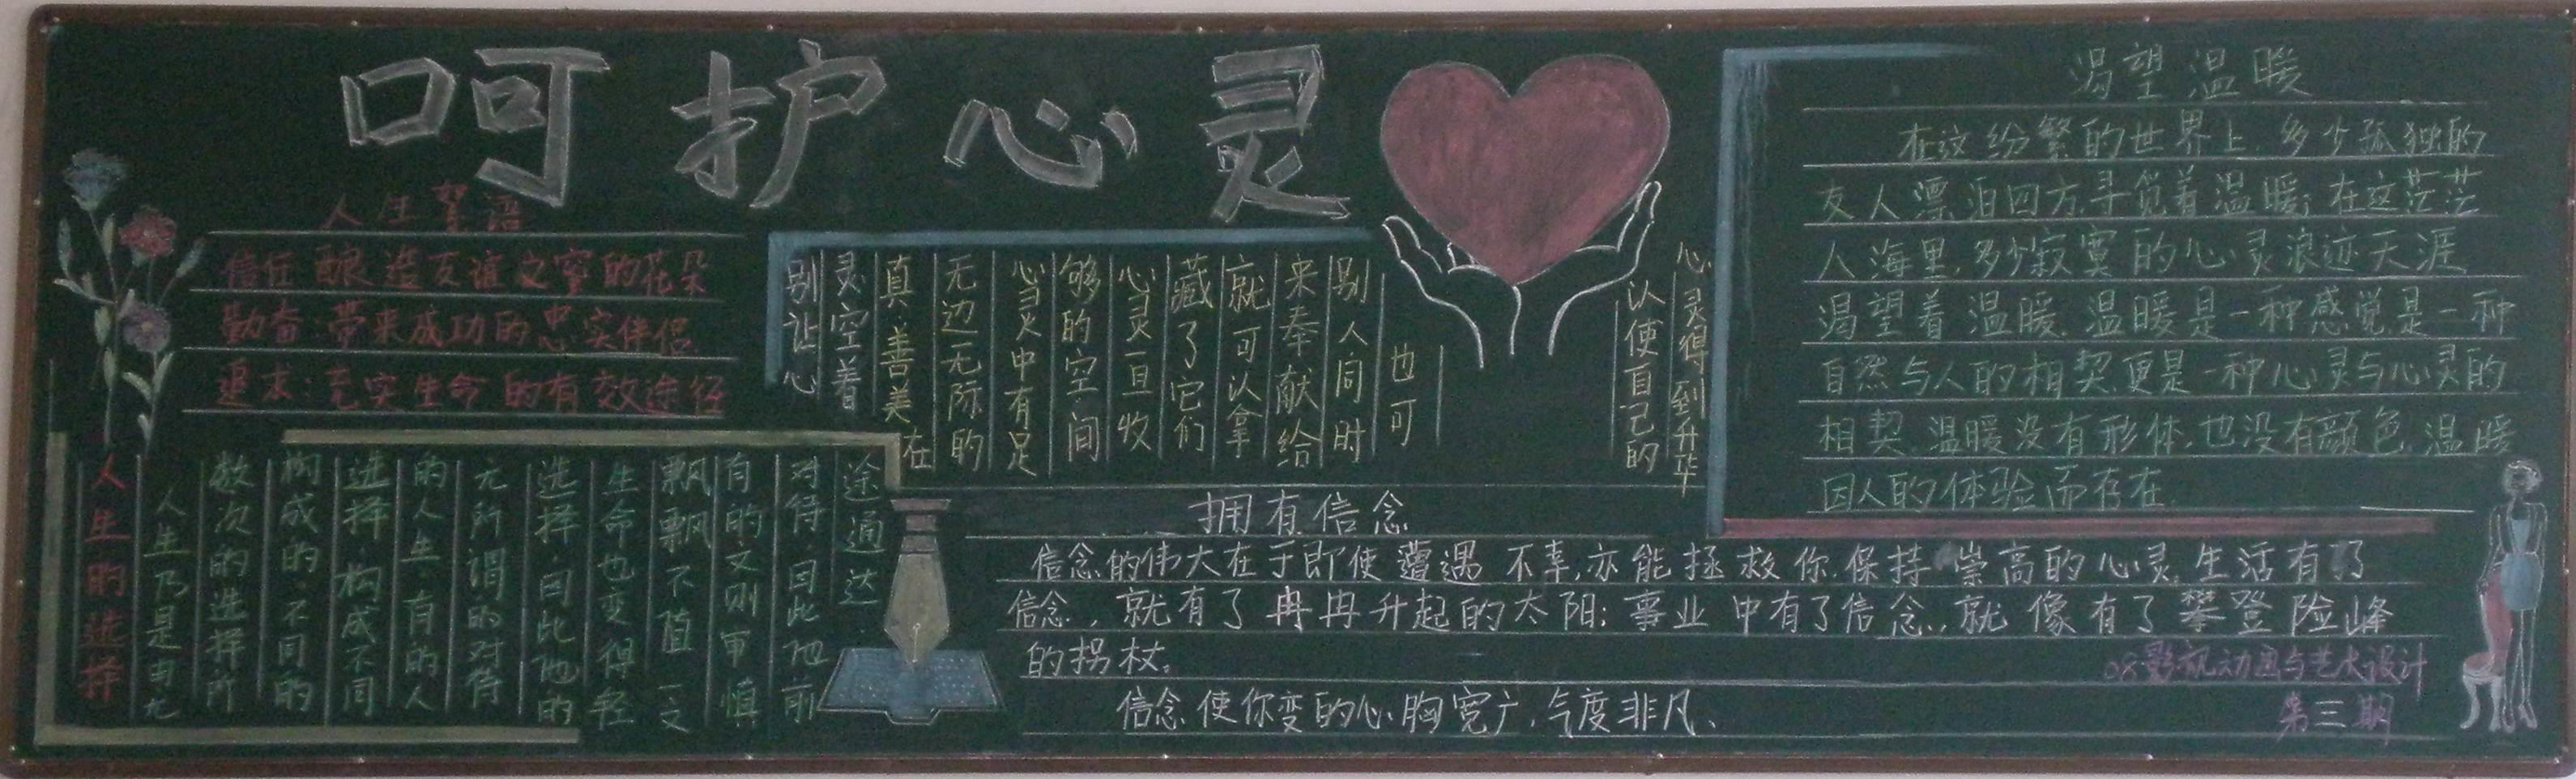 呵护心灵
人生絮语
信任:酿造友谊之蜜的花朵
勤奋:带来成功的忠实伴侣
追求:充实生命的有效途径
别让心
灵空着
真善美在
无边无际的
心灵中有足
够的空间
心灵一旦收
藏了它们
就可以拿
来奉献给
别人同时
也可
以使自己的
心灵得到升华
渴望温暖
在这纷繁的世界上,多少孤独的
友人漂泊四方寻觅着温暖;在这茫茫
人海里,多少寂寞的心灵浪迹天涯
渴望着温暖.温暖是一种感觉是一种
自然与人的相契更是一种心灵与心灵的
相契.温暖没有形体.也没有颜色.温暖
因人的体验而存在.
人生的选择
人生乃是由无
数次的选择所
构成的.不同的
选择.构成不同
的人生.有的人
无所谓的对待
选择.因此他的
生命也变得轻
飘飘不值一文
有的又则审慎
对待.因此他前
途通达.
拥有信念
信念的伟大在于即使遭遇不幸,亦能拯救你.保持崇高的心灵.生活有了
信念,就有了冉冉升起的太阳;事业中有了信念,就像有了攀登险峰
的拐杖。
信念使你变的心胸宽广,气度非凡、
08影视动画与艺术设计
第三期